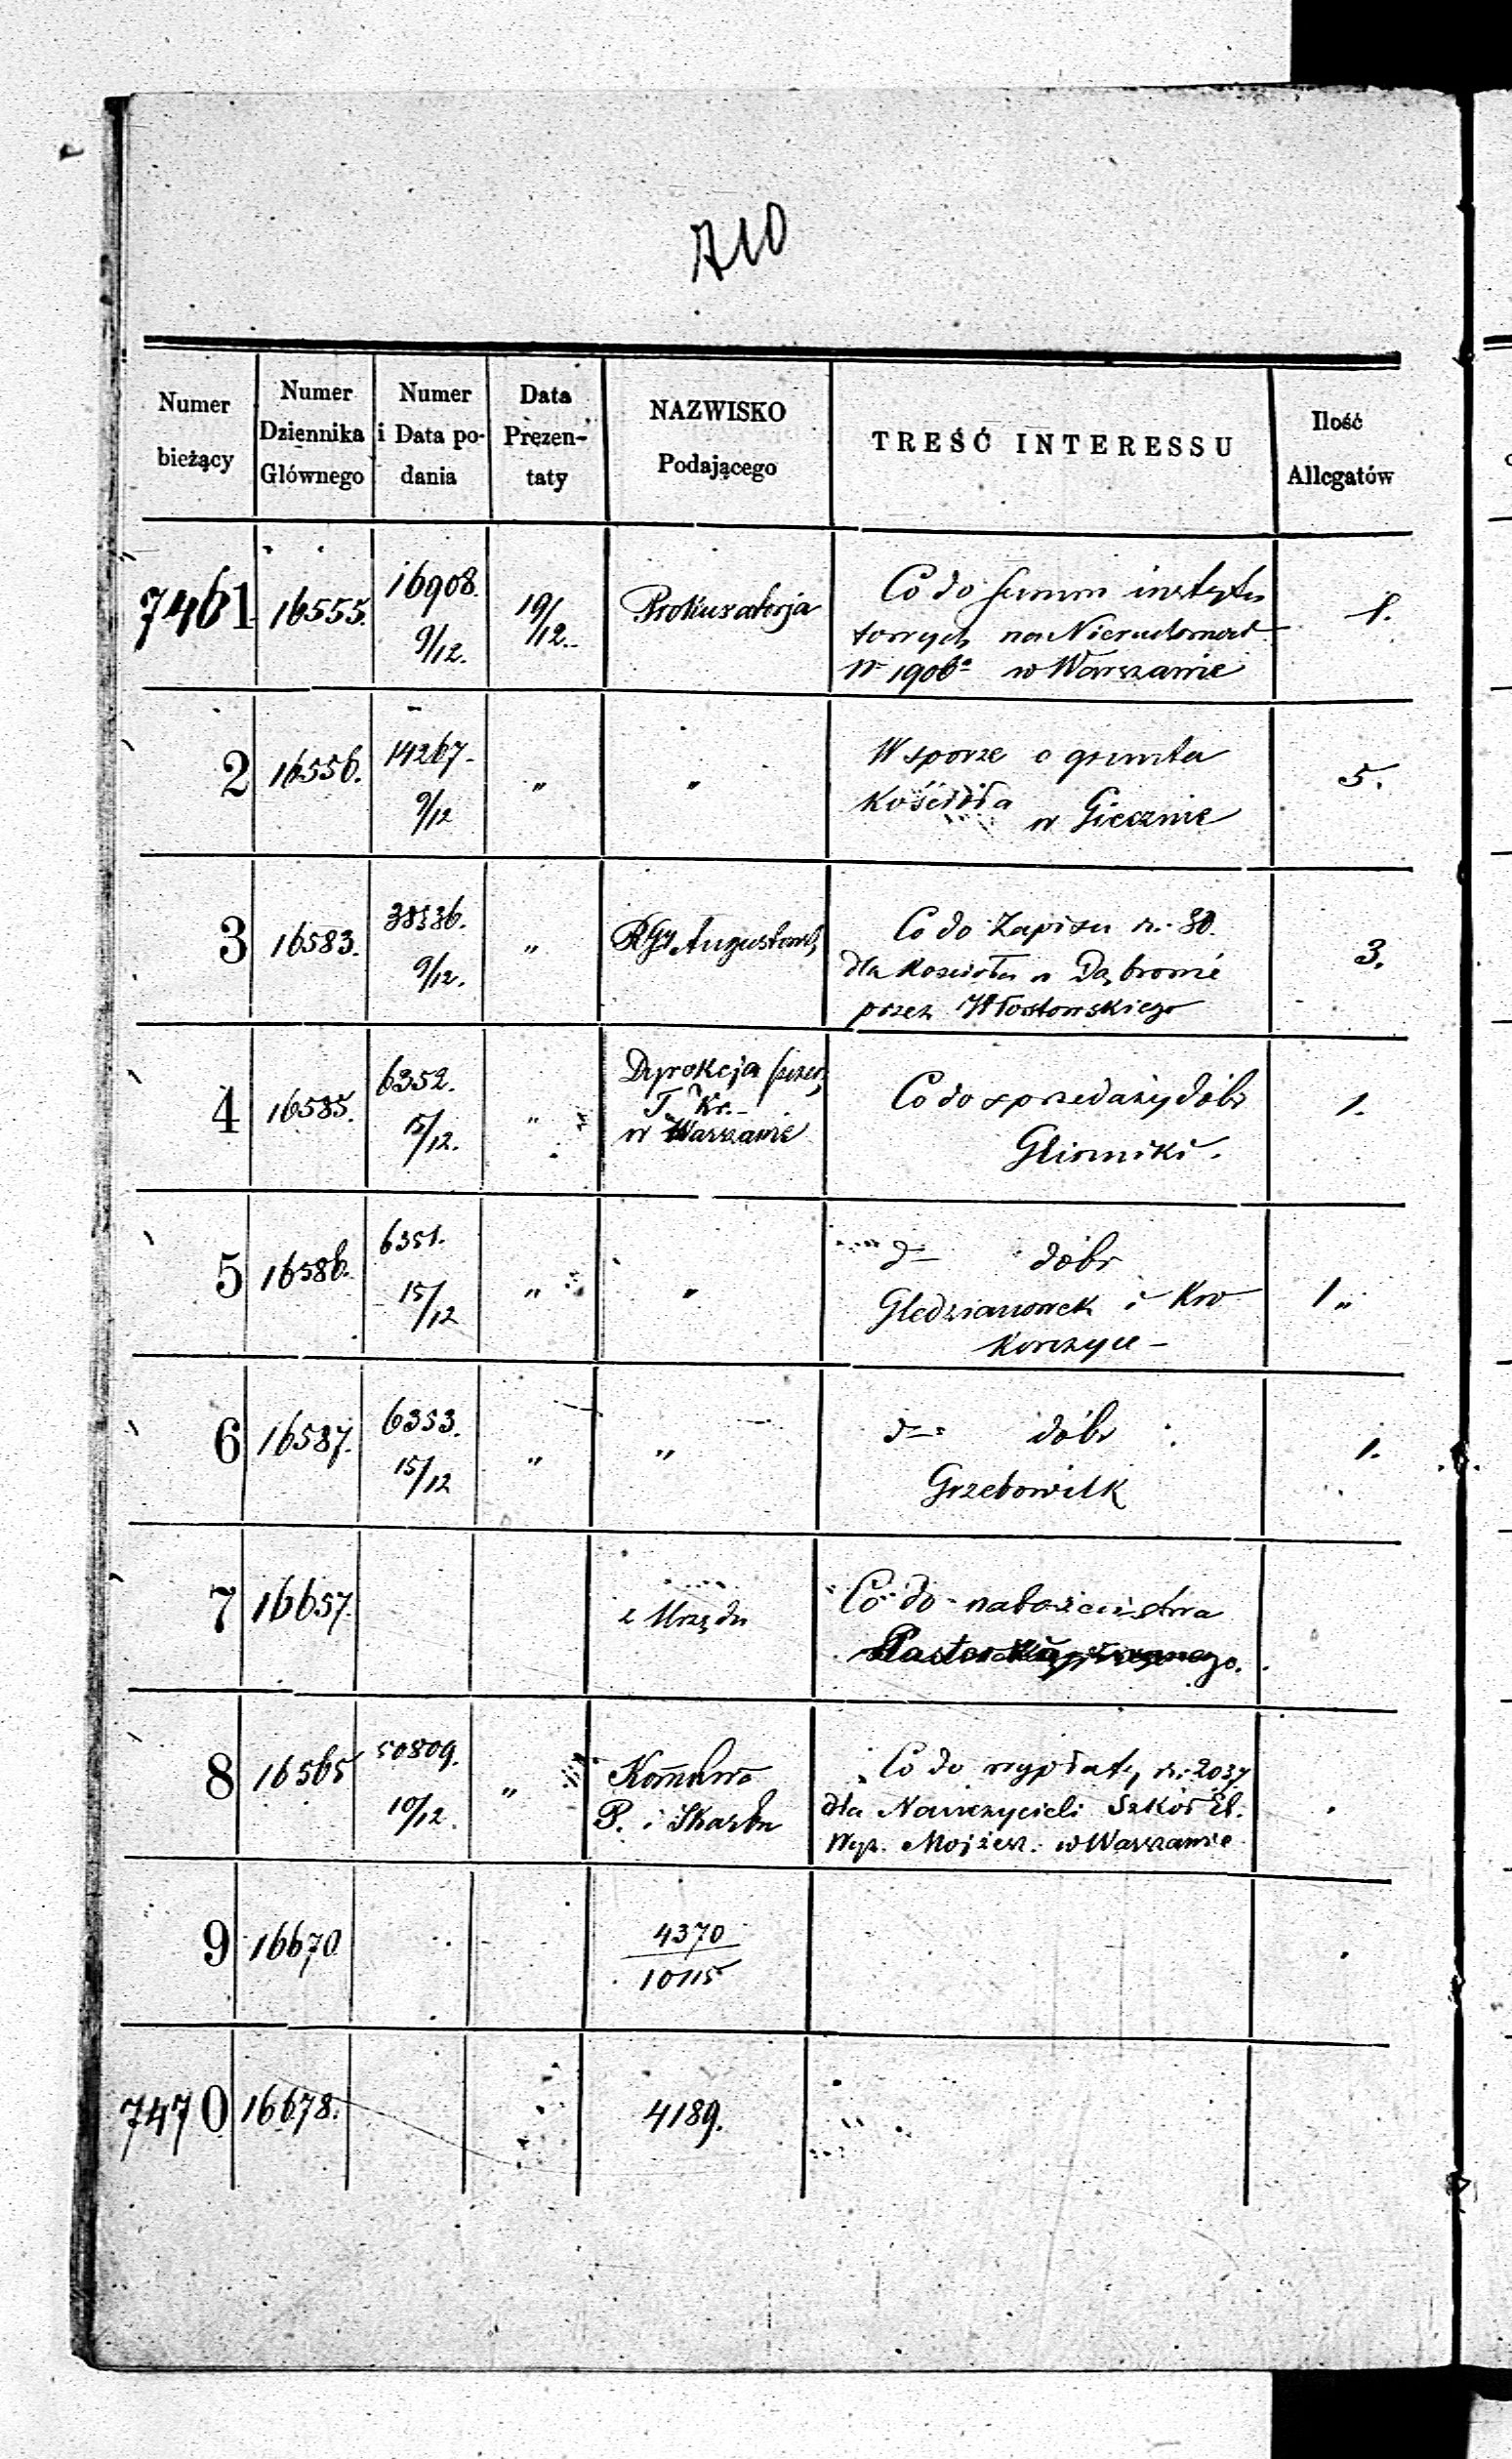 710
Numer bieżący
Numer Dziennika Głównego
Numer i Data podania
Data Prezentaty
NAZWISKO Podającego
TREŚĆ INTERESSU
Ilość Allegatów
7461 16555. 16908. 9/12. 19/12. Prokuratorja Co do summ instytu
towych na Nieruchomoś.
Nr 1906 w Warszawie
1.
2 16556. 14267. 9/12 " " W sporze o grunta
Kościoła w Giecznie
5.
3 16583. 38536. 9/12. " RGy Augustows, Co do Zapisu r. 30.
dla Kościoła w Dąbrowie
przez Włostowskiego
3.
4 16585. 6352. 15/12. " Dyrekcja szcz,
T. Kr.
w Warszawie
Co do sprzedaży dóbr
Gliniki.
1.
5 16586. 6351. 15/12 " " d– dóbr
Gledzianowek i Kro
korczyce –
1 "
6 16587. 6353. 15/12 " " d– dóbr
Grzebowilk
1.
7 16657. z Urzędu Co do nabożeństwa
8 16565 50809. 10/12. "
P. i Skarbu
Co do wypłaty r. 2037
dla Nauczycieli Szkół El.
Wyz. Mojżesz. w Warszawie
9 16670 4370
10115
7470 16678. 4189.